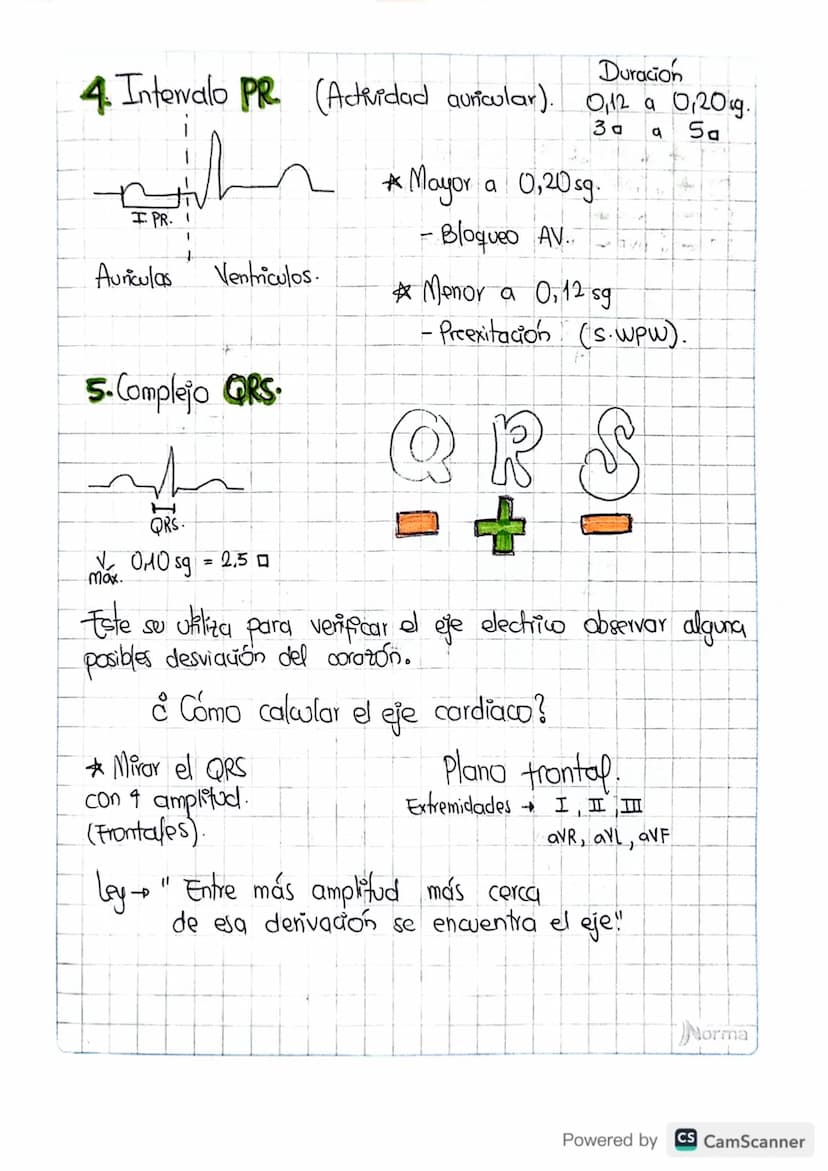 4. Intervalo PR (Actividad auricular).
Duración
0,12 a 0,20 sg.
3□ a 5□
I PR.
Auriculas Ventriculos.
* Mayor a 0,20 sg.
- Bloqueo AV.
* Menor a 0,12 sg
- Preexitación (S. WPW).
5. Complejo QRS.
QRS.
Q R S
- + -
V máx. 0,10 sg = 2,5 □
Este se utiliza para verificar el eje electrico observar alguna
posibles desviación del corazón.
¿ Cómo calcular el eje cardiaco?
* Mirar el QRS
con ↑ amplitud.
(Frontales).
Plano frontal.
Extremidades → I, II, III
aVR, aVL, aVF
Ley → " Entre más amplitud más cerca
de esa derivación se encuentra el eje"
Norma
Powered by CS CamScanner